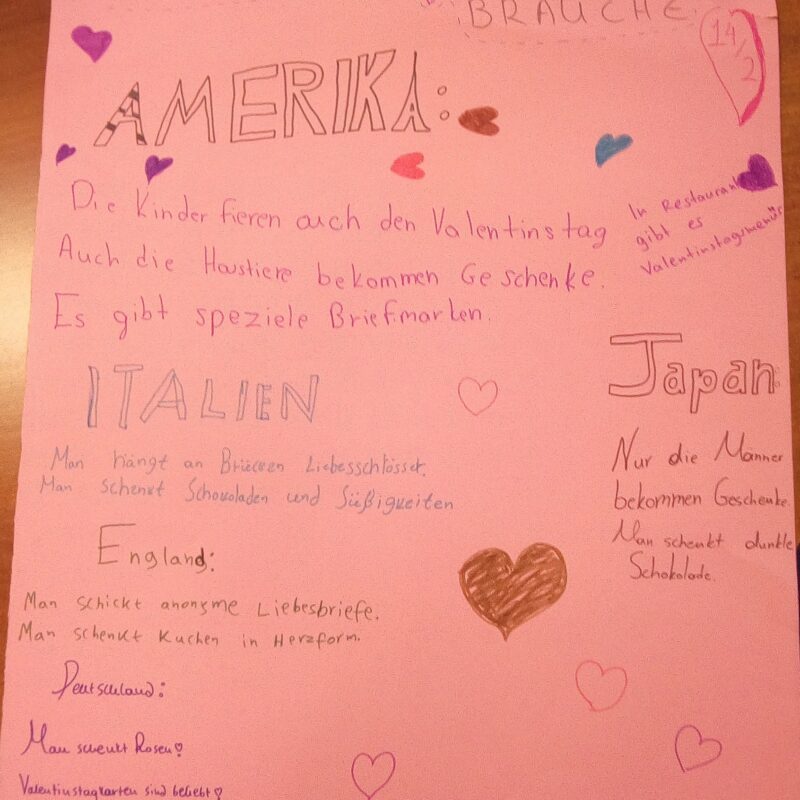 BRÄUCHE
14/2
AMERIKA:
Die Kinder fieren auch den Valentinstag
Auch die Haustiere bekommen Geschenke.
Es gibt speziele Briefmarken.
In Restaurant
gibt es
Valentinstagsmenüs
ITALIEN
Man hängt an Brücken Liebesschlösser.
Man schenkt Schokoladen und Süßigkeiten
Japan
Nur die Männer
bekommen Geschenke.
Man schenkt dunkle
Schokolade.
England:
Man schickt anonyme Liebesbriefe.
Man schenkt Kuchen in Herzform.
Deutschland:
Man schenkt Rosen
Valentinstagkarten sind beliebt